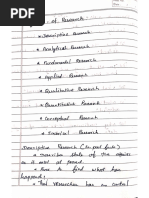 of Research
Descriptive Research
Analytical Research
Fundamental Research
Applied Research
Qualitative Research
Quantitative Research
Conceptual Research
Research
Descriptive Research
• describe state of the affairs
as it exist at present
to find what has
happened
• The researcher has no control